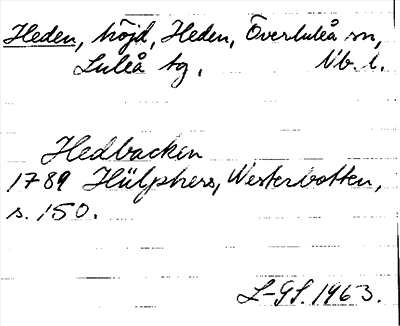 Heden, höjd, Heden, Överluleå sn,
Luleå tg. Nb. l.
Hedbacken
1789 Hülphers, Westerbotten,
s. 150.
L-GS. 1963.